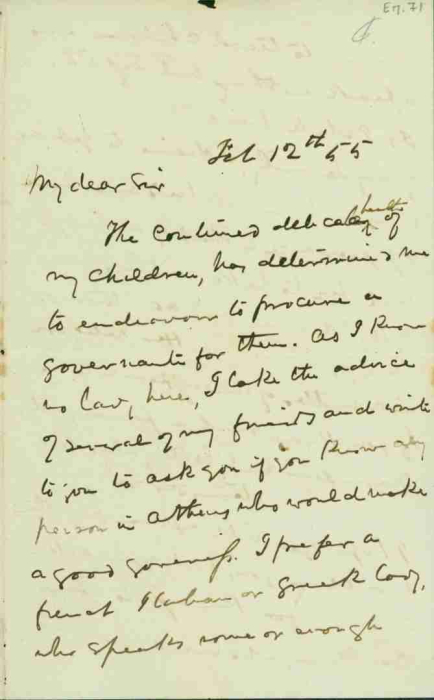 Em. 71
Feb 12th 55
My dear Sir
The continued delicate health of
my children, has determined me
to endeavour to procure a
governante for them. As I know
no Lady here, I take the advice
of several of my friends and write
to you to ask you if you know any
person in Athens who would make
a good governess. I prefer a
french Italian or Greek Lady,
who speaks some or enough